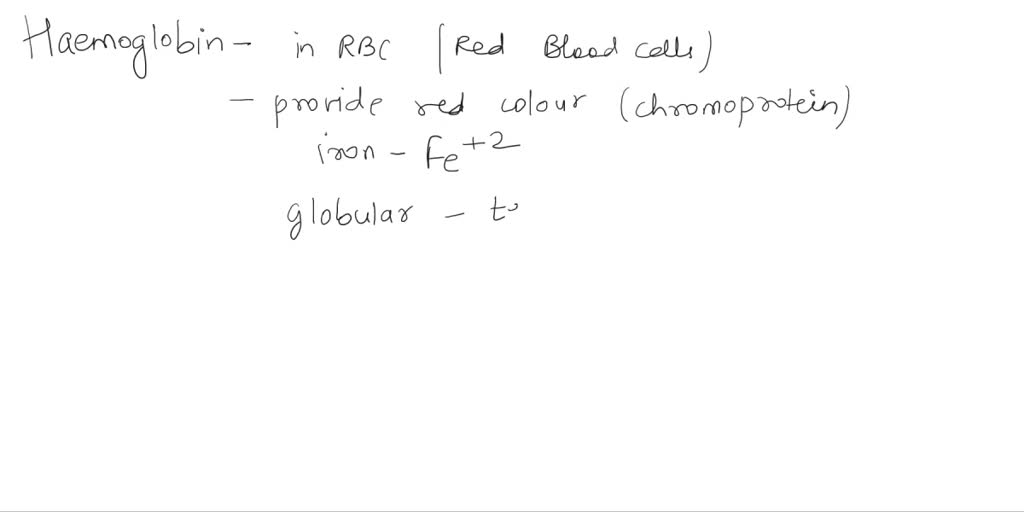 Haemoglobin - in RBC (Red Blood cells)
- provide red colour (chromoprotein)
iron - Fe+2
globular -